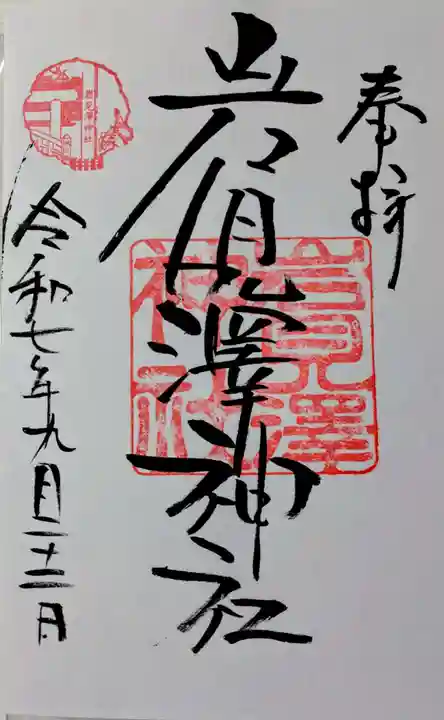 奉拝
岩見澤神社
岩見澤神社
岩見澤神社
令和七年九月二十二日